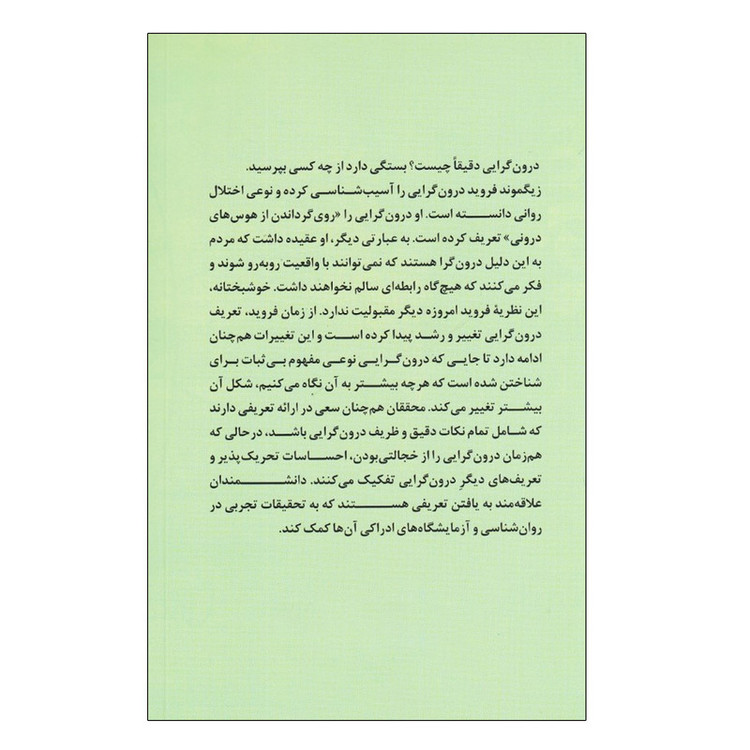 درون‌گرایی دقیقاً چیست؟ بستگی دارد از چه کسی بپرسید.
زیگموند فروید درون‌گرایی را آسیب‌شناسی کرده و نوعی اختلال
روانی دانسته است. او درون‌گرایی را «روی‌گرداندن از هوس‌های
درونی» تعریف کرده است. به عبارتی دیگر، او عقیده داشت که مردم
به این دلیل درون‌گرا هستند که نمی‌توانند با واقعیت روبه‌رو شوند و
فکر می‌کنند که هیچ‌گاه رابطه‌ای سالم نخواهند داشت. خوشبختانه،
این نظریهٔ فروید امروزه دیگر مقبولیت ندارد. از زمان فروید، تعریف
درون‌گرایی تغییر و رشد پیدا کرده است و این تغییرات هم‌چنان
ادامه دارد تا جایی که درون‌گرایی نوعی مفهوم بی‌ثبات برای
شناختن شده است که هرچه بیشتر به آن نگاه می‌کنیم، شکل آن
بیشتر تغییر می‌کند. محققان هم‌چنان سعی در ارائه تعریفی دارند
که شامل تمام نکات دقیق و ظریف درون‌گرایی باشد، درحالی که
هم‌زمان درون‌گرایی را از خجالتی‌بودن، احساسات تحریک‌پذیر و
تعریف‌های دیگرِ درون‌گرایی تفکیک می‌کنند. دانشمندان
علاقه‌مند به یافتن تعریفی هستند که به تحقیقات تجربی در
روان‌شناسی و آزمایشگاه‌های ادراکی آن‌ها کمک کند.